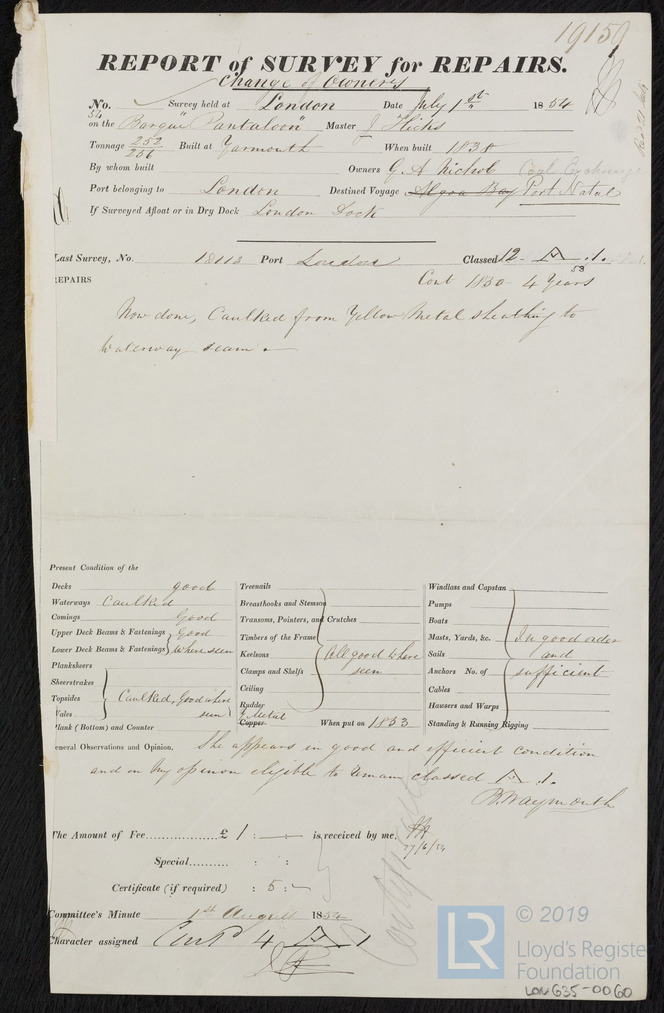 19150
REPORT of SURVEY for REPAIRS.
Change of Owners
No. Survey held at London Date July 1st 1854
54
on the Barque "Pantaloon" Master J Hicks
Tonnage 252/256 Built at Yarmouth When built 1838
By whom built Owners G. A Nichol Coal Exchange
Port belonging to London Destined Voyage Algoa Bay Port Natal
If Surveyed Afloat or in Dry Dock London Dock
Last Survey, No. 18113 Port London Classed 12 A .1.
REPAIRS Cont 1850 - 4 Years
53
Now done, Caulked from Yellow Metal sheathing to
Waterway seam
Present Condition of the
Decks good
Waterways Caulked
Comings Good
Upper Deck Beams & Fastenings Good
Lower Deck Beams & Fastenings where seen
Planksheers
Sheerstrakes
Topsides Caulked, Good where
Wales seen
Plank (Bottom) and Counter
Treenails
Breasthooks and Stemson
Transoms, Pointers, and Crutches
Timbers of the Frame
Keelsons All good where
Clamps and Shelfs seen
Ceiling
Rudder
Y Metal
Copper When put on 1853
Windlass and Capstan
Pumps
Boats
Masts, Yards, &c. In good order
Sails and
Anchors No. of sufficient
Cables
Hausers and Warps
Standing & Running Rigging
General Observations and Opinion, She appears in good and efficient condition
and in my opinion eligible to remain classed A .1.
B. Waymouth
The Amount of Fee............... £ 1 : — is received by me,
27/6/54
Special.......... : :
Certificate (if required) : 5 : -
Committee's Minute 1st August 1854
Character assigned Cont 4 A 1
LR © 2019
Lloyd's Register
Foundation
LON 635-0060